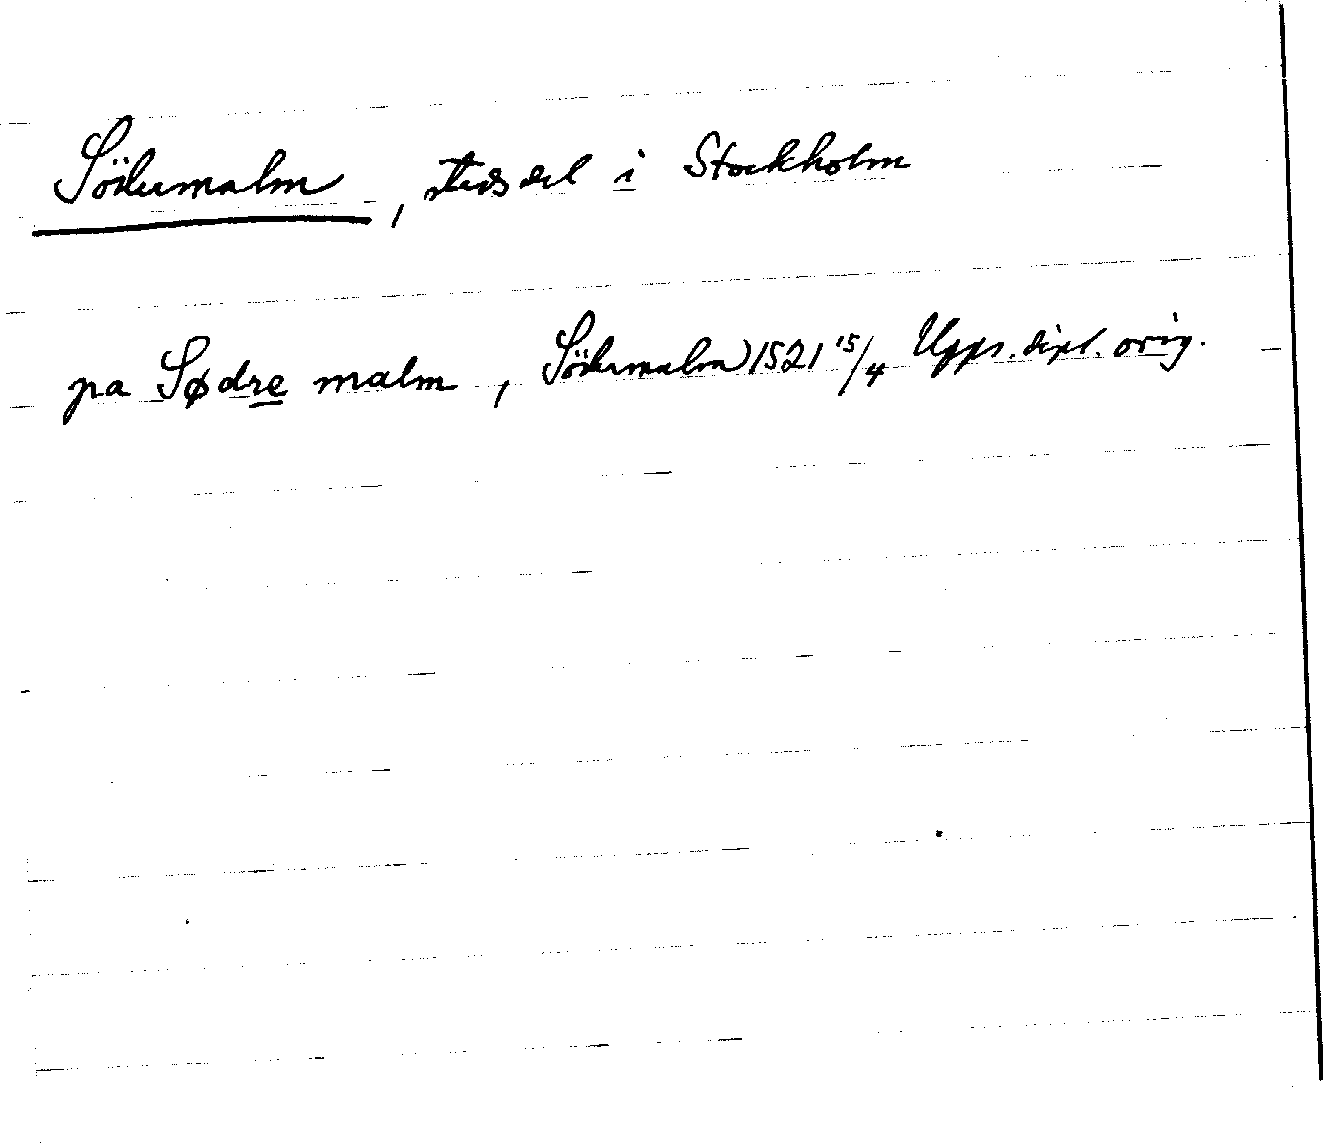 Södermalm, stadsdel i Stockholm
pa Sødre malm, Södermalm) 1521 15/4 Upps. dipl. orig.